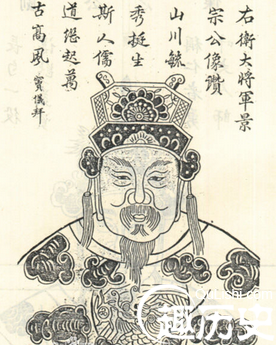 右衛大將軍景
宗公像讚
山川毓
秀挺生
斯人儒
道繼起萬
古高風
竇儀拜
趣历史